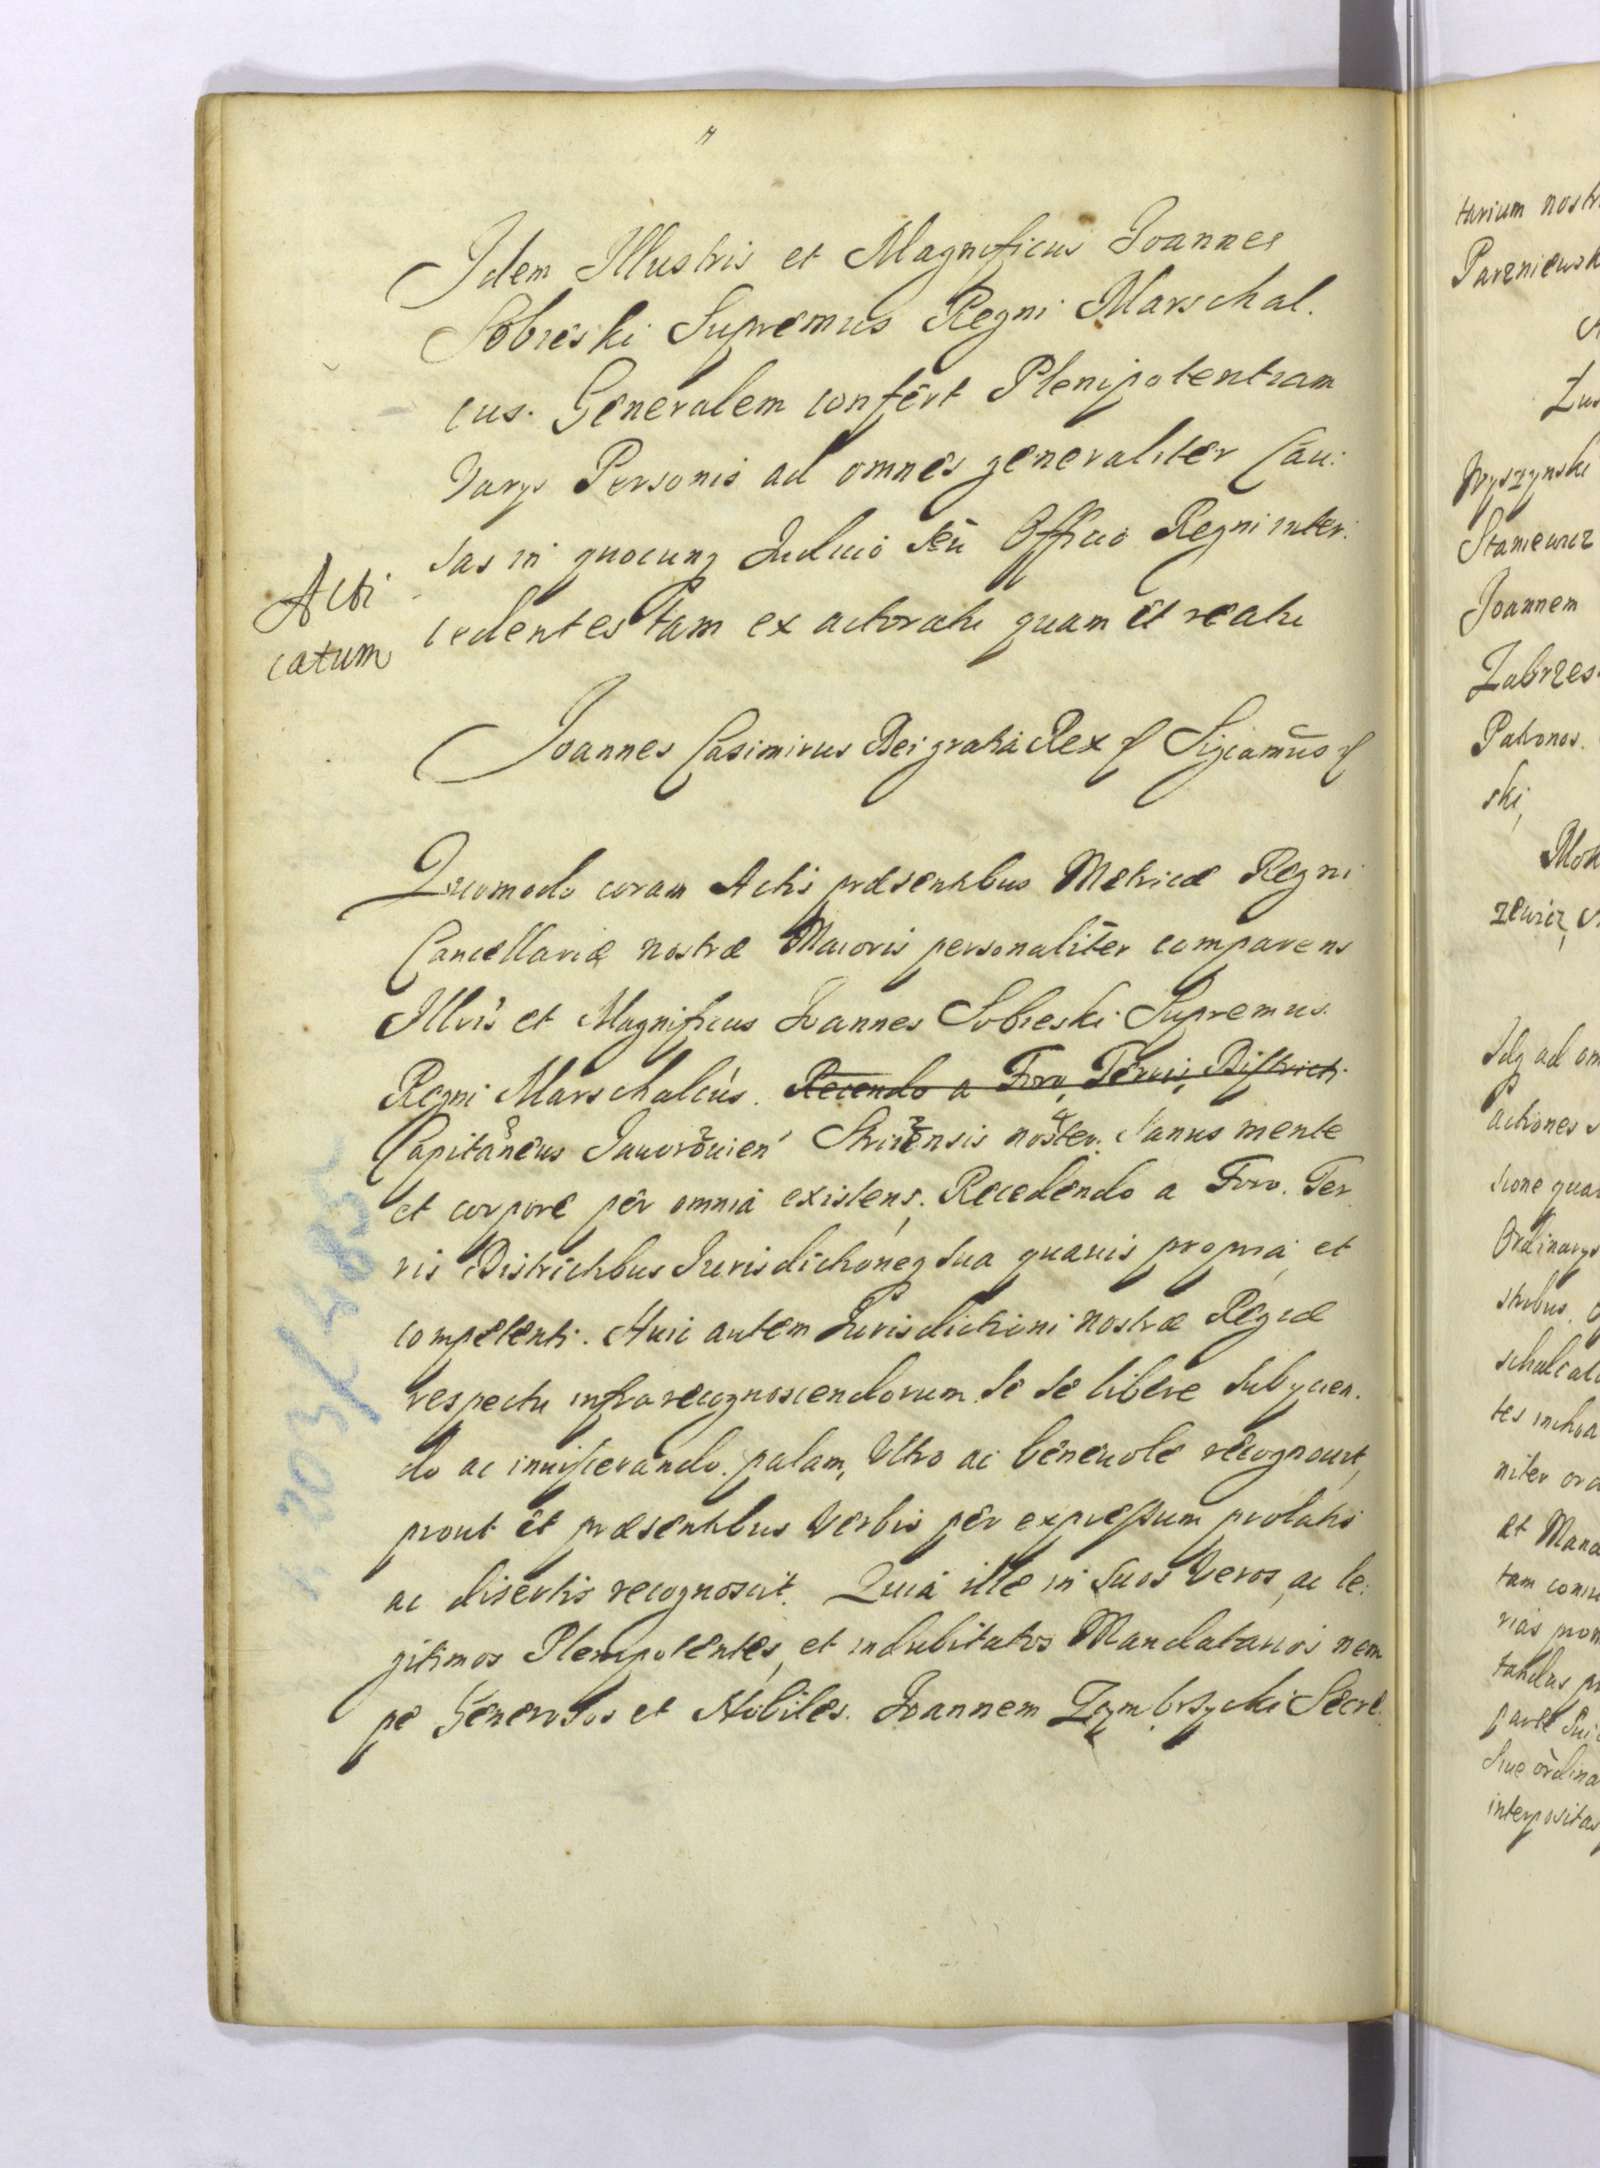 Idem Illustris et Magnificus Joannes
Sobieski Supremus Regni Marschal.
cus. Generalem confert Plenipotentiam
Varys Personis ad omnes generaliter Cau:
sas in quocunq Iudicio seu Officio Regni inter:
cedentes tam ex actoratu quam et reatu
Acti
catum
Joannes Casimirus Dei gratia Rex Significamus
Quomodo coram Actis præsentibus Metricæ Regni
Cancellariæ nostræ Maioris personaliter comparens
Illris et Magnificus Joannes Sobieski Supremus
Regni Marschalcus. Recendo a Foro, Terris, District.
Capitaneus Iauorouien Striiensis noster. Sanus mente
et corpore per omnia existens. Recedendo a Foro. Ter
ris Districtibus Iurisdictioneq sua quauis propria et
competenti. Huic autem Iurisdictioni nostræ Regiæ
respectu infrarecognoscendorum se se libere subycien.
do ac inuisceran do. palam, Vltro ac beneuole recognouit,
prout et præsentibus Verbis per expressum prolatis
ac disertis recognoscit. Quia ille in suos Veros, ac le:
gitimos Plenipotentes, et indubitatos Mandatarios nem
pe Generosos et Nobiles. Joannem Zembrzycki Secre.
s. 203/485
tarium nostr
Parzniewsk
Wyszynski
Staniewicz
Joannem
Zabrzes.
Patronos.
ski,
zewicz,
ad om
actiones
sione qua
Ordinarys
schalcatu
tes inchoa
niter
et Mana
tam
rias
parte Sui
Siue ordina
interpositas